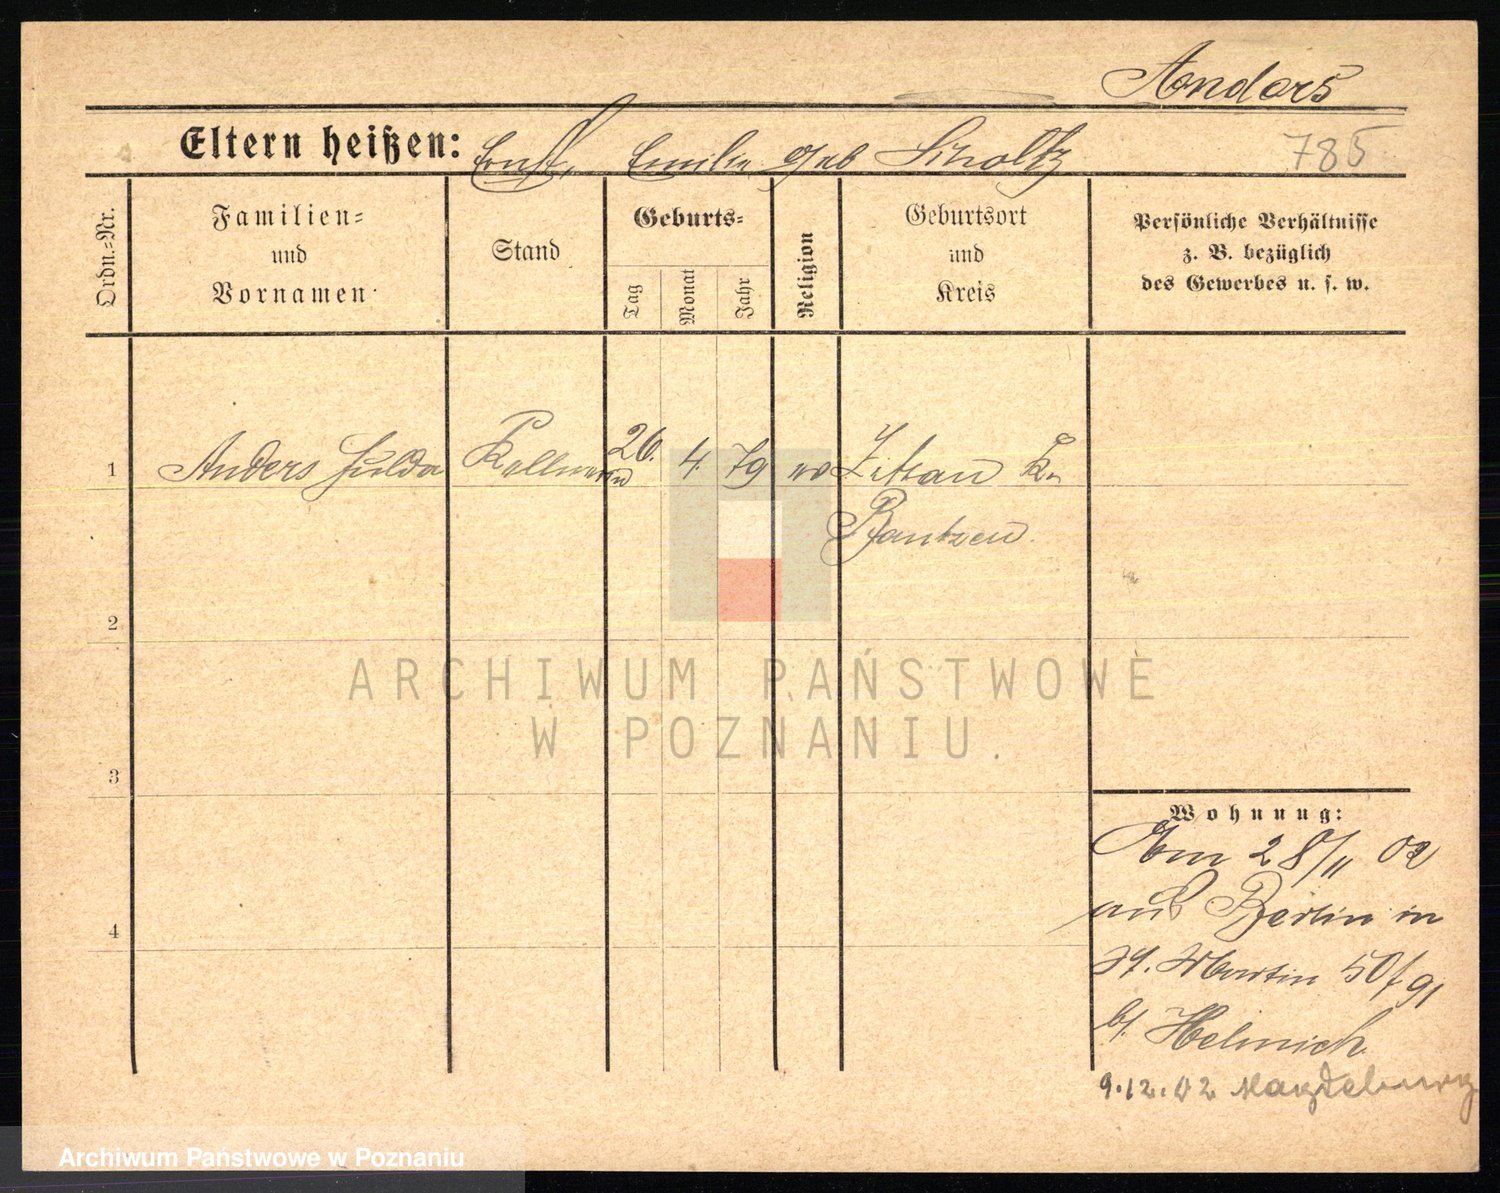 Anders
Eltern heißen: Ernst, Emilie geb Scholtz
785
Ordn.=Nr.
Familien=
und
Vornamen
Stand
Geburts=
Tag
Monat
Jahr
Religion
Geburtsort
und
Kreis
Persönliche Verhältnisse
z. B. bezüglich
des Gewerbes u. s. w.
1 Anders Hulda Kellnerin 26. 4. 79 Zittau Kr
Bautzen
2
3
4
Wohnung:
Am 28/11 02
aus Berlin in
St. Martin 50/91
b/. Helmich
9.12.02 Magdeburg
ARCHIWUM PAŃSTWOWE
W POZNANIU.
Archiwum Państwowe w Poznaniu